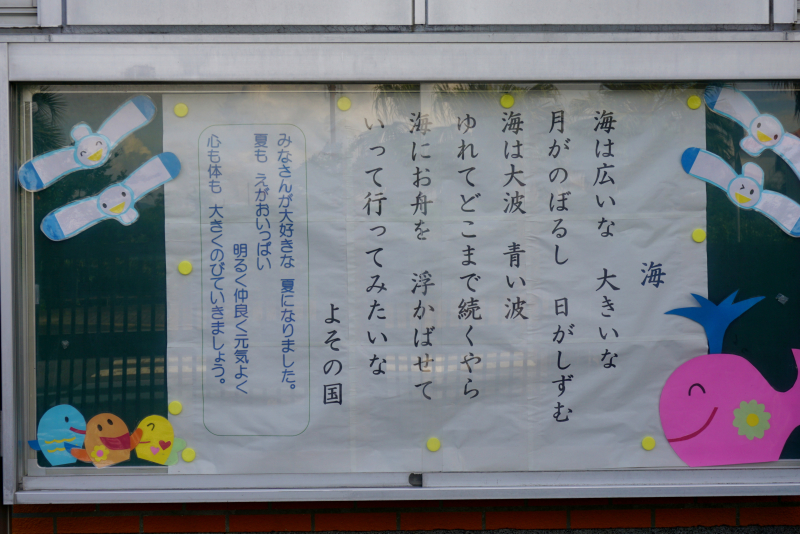 海
海は広いな　大きいな
月がのぼるし　日がしずむ
海は大波　青い波
ゆれてどこまで続くやら
海にお舟を　浮かばせて
いって行ってみたいな
よその国
みなさんが大好きな　夏になりました。
夏も　えがおいっぱい
明るく仲良く元気よく
心も体も　大きくのびていきましょう。